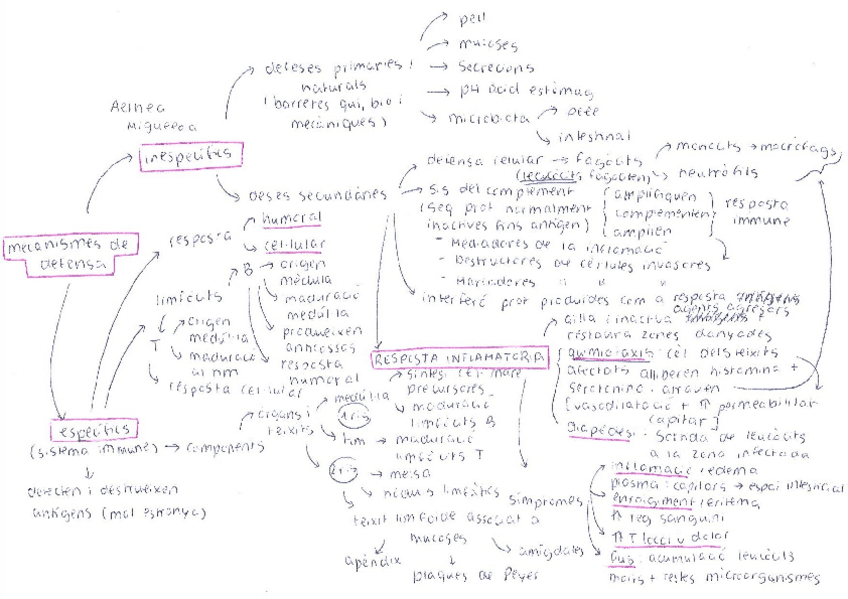 pell
mucoses
secrecions
pH àcid estómag
microbiota
intestinal
defeses primàries i
naturals
(barreres quí, bio i
mecàniques)
Ainea
inespecífics
mecanismes de
defensa
defensa celular → fagòcits
monòcits → macròfags
neutròfils
deses secundàries
sis del complement
(seq prot normalment
inactives fins antigen)
amplifiquen
complementen
amplien
resposta
immune
- Mediadores de la inflamació
- Destructores de cèl·lules invasores
- Marcadores " " "
interferó prot produïdes com a resposta
agents agresors
resposta
humoral
cel·lular
B
origen
mèdul·la
maduració
medul·la
produeixen
anticossos
resposta
humoral
limfòcits
T
origen
medul·la
maduració
resposta cel·lular
RESPOSTA INFLAMATORIA
aïlla i inactiva
restaura zones danyades
quimiotaxis: cel dels teixits
afectats alliberen histamina +
serotonina. atrauen
[vasodilatació + ↑ permeabilitat
capilar]
diapedesi: Sortida de leucòcits
a la zona infectada
específics
(sistema immune) → components
detecten i destrueixen
antígens (mol estranya)
òrgans i
teixits
medul·la
síntesi cèl mare
precursores
maduració
limfòcits B
maduració
limfòcits T
melsa
nòduls limfàtics
teixit limfoide associat a
mucoses
apèndix
plaques de Peyer
amígdales
símptomes
inflamació: edema
plasma: capilars → espai intersticial
enrogiment: eritema
↑ reg sanguini
↑ T local i dolor
Pus: acumulació leucòcits
morts + restes microorganismes